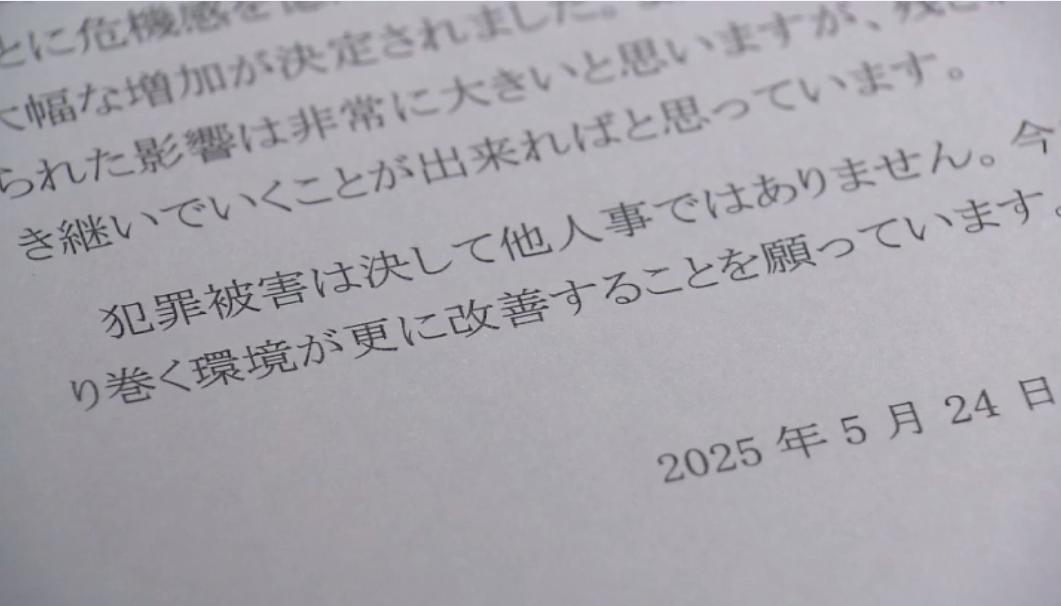 とに危機感を
大幅な増加が決定されました。
られた影響は非常に大きいと思いますが、残
き継いでいくことが出来ればと思っています。
犯罪被害は決して他人事ではありません。今
り巻く環境が更に改善することを願っています。
2025 年 5 月 24 日